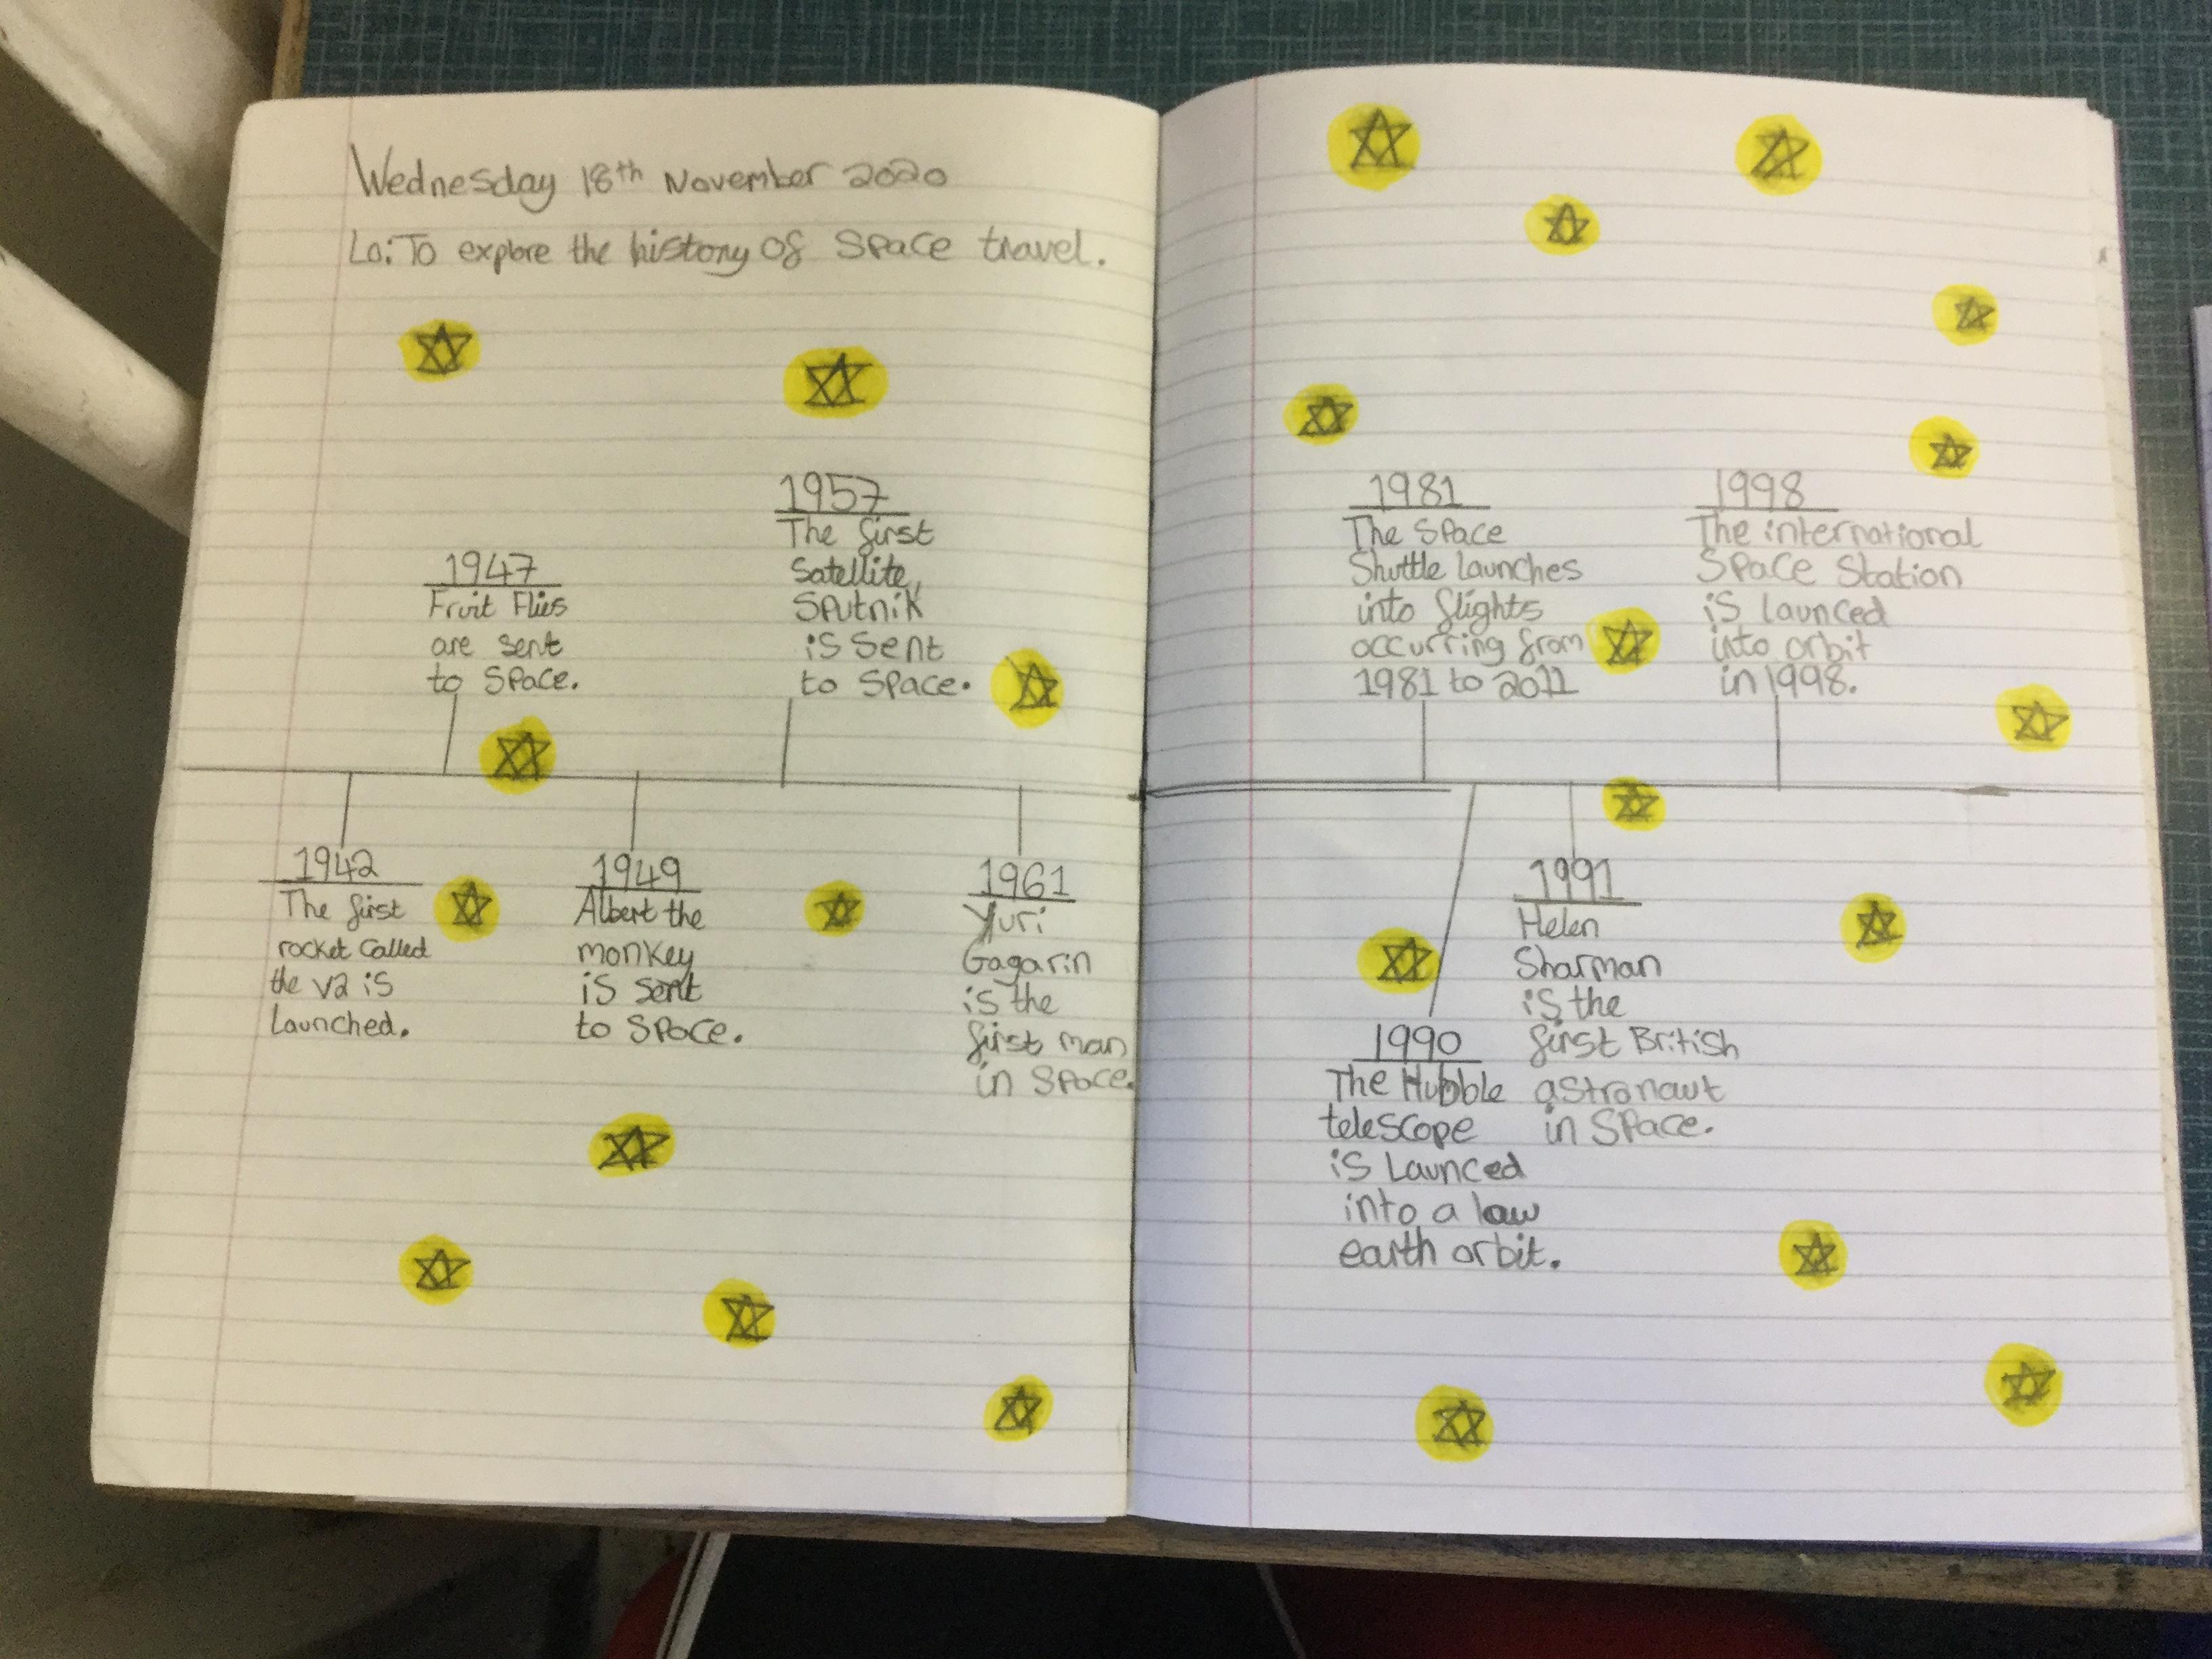 Wednesday 18th November 2020
Lo: To explore the history of space travel.
1947
Fruit Flies
are sent
to space.
1957
The first
Satellite,
Sputnik
is sent
to space.
1942
The first
rocket called
the v2 is
Launched.
1949
Albert the
monkey
is sent
to space.
1961
Yuri
Gagarin
is the
first man
in space.
1981
The Space
Shuttle Launches
into flights
occurring from
1981 to 2011
1998
The international
Space Station
is launced
into orbit
in 1998.
1990
The Hubble
telescope
is Launced
into a low
earth orbit.
1991
Helen
Sharman
is the
first British
astronaut
in space.